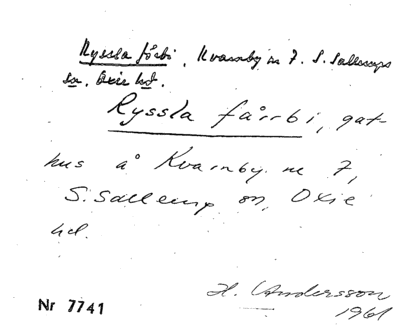 Ryssla fårbi, Kvarnby nr 7. S. Sallerups
sn, Oxie hd.
Ryssla fårrbi, gat-
hus å Kvarnby nr 7,
S. Sallerup sn, Oxie
hd.
H. Andersson
1961
Nr 7741